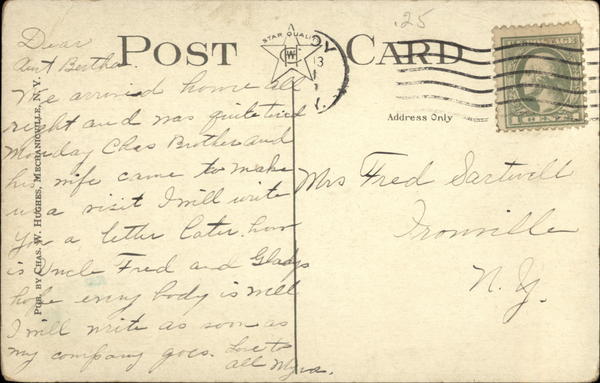 .25
POST CARD
STAR QUALITY
Address Only
PUB. BY CHAS. W. HUGHES, MECHANICVILLE, N. Y.
Dear
Aunt Bertha.
We arrived home all
right and was quite tired
Monday Chas Brother and
his wife came to make
us a visit I will write
you a letter later. how
is Uncle Fred and Gladys
hope every body is well
I will write as soon as
my company goes. Love to
all Myra.
Mrs Fred Sartwell
Ironville
N. Y.